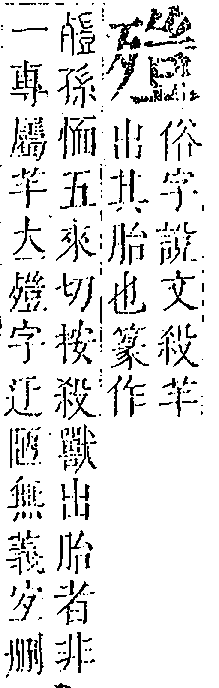 俗字說文殺羊
出其胎也篆作
孫愐五來切按殺獸出胎者非
一專屬羊大字迂陋無義宐刪